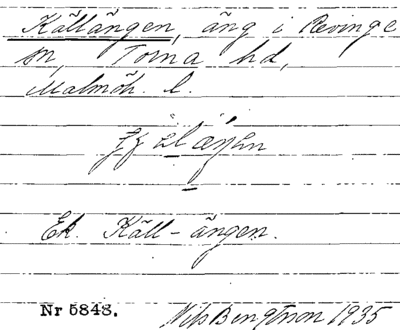 Källängen, äng i Revinge
sn, Torna hd,
Malmöh. l.
Ek. Käll-ängen.
Nr 5848. Nils Bengtsson 1935